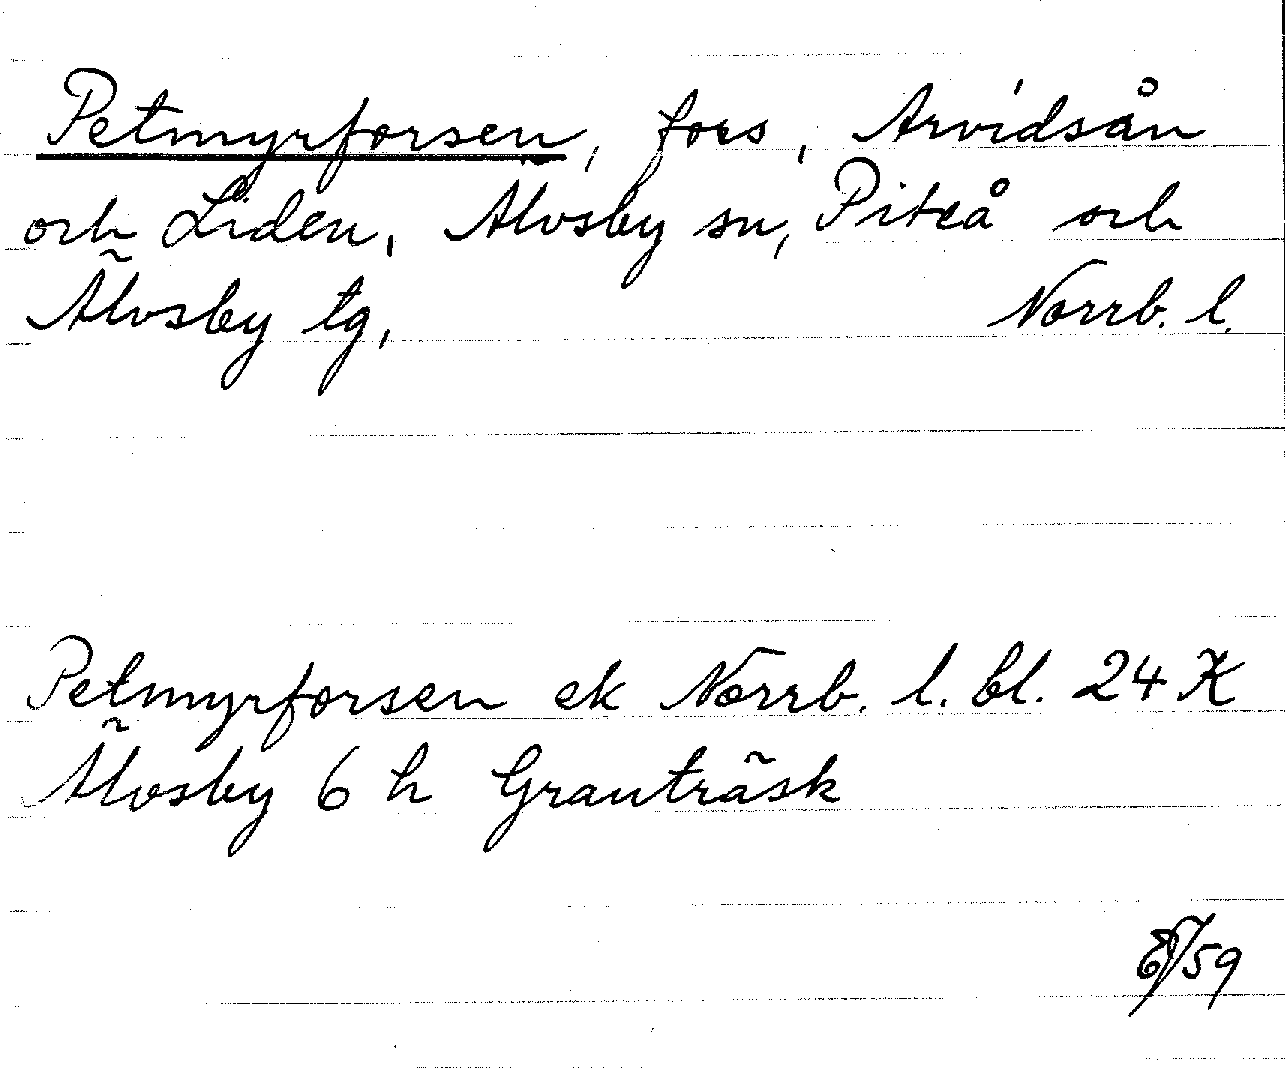 Petmyrforsen, fors, Arvidsån
och Liden, Älvsby sn, Piteå och
Älvsby tg, Norrb. l.
Petmyrforsen ek Norrb. l. bl. 24 K
Älvsby 6 h Granträsk
/59